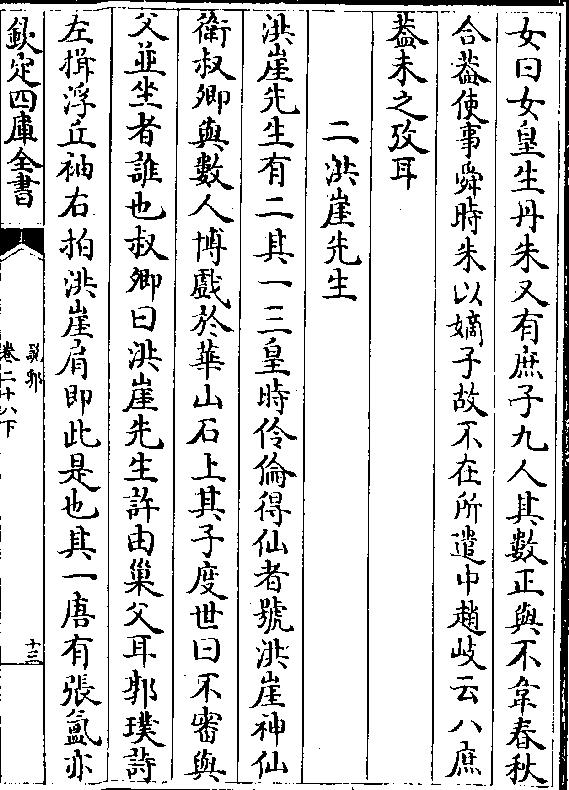 女曰女皇生丹朱又有庶子九人其數正與不韋春秋
合葢使事舜時朱以嫡子故不在所遣中趙岐云八庶
葢未之攷耳
二洪崖先生
洪崖先生有二其一三皇時伶倫得仙者號洪崖神仙
衛叔卿與數人博戲於華山石上其子度世曰不審與
父並坐者誰也叔卿曰洪崖先生許由巢父耳郭璞詩
左揖浮丘袖右拍洪崖肩即此是也其一唐有張氳亦
欽定四庫全書
說郛
卷二十八下
十三